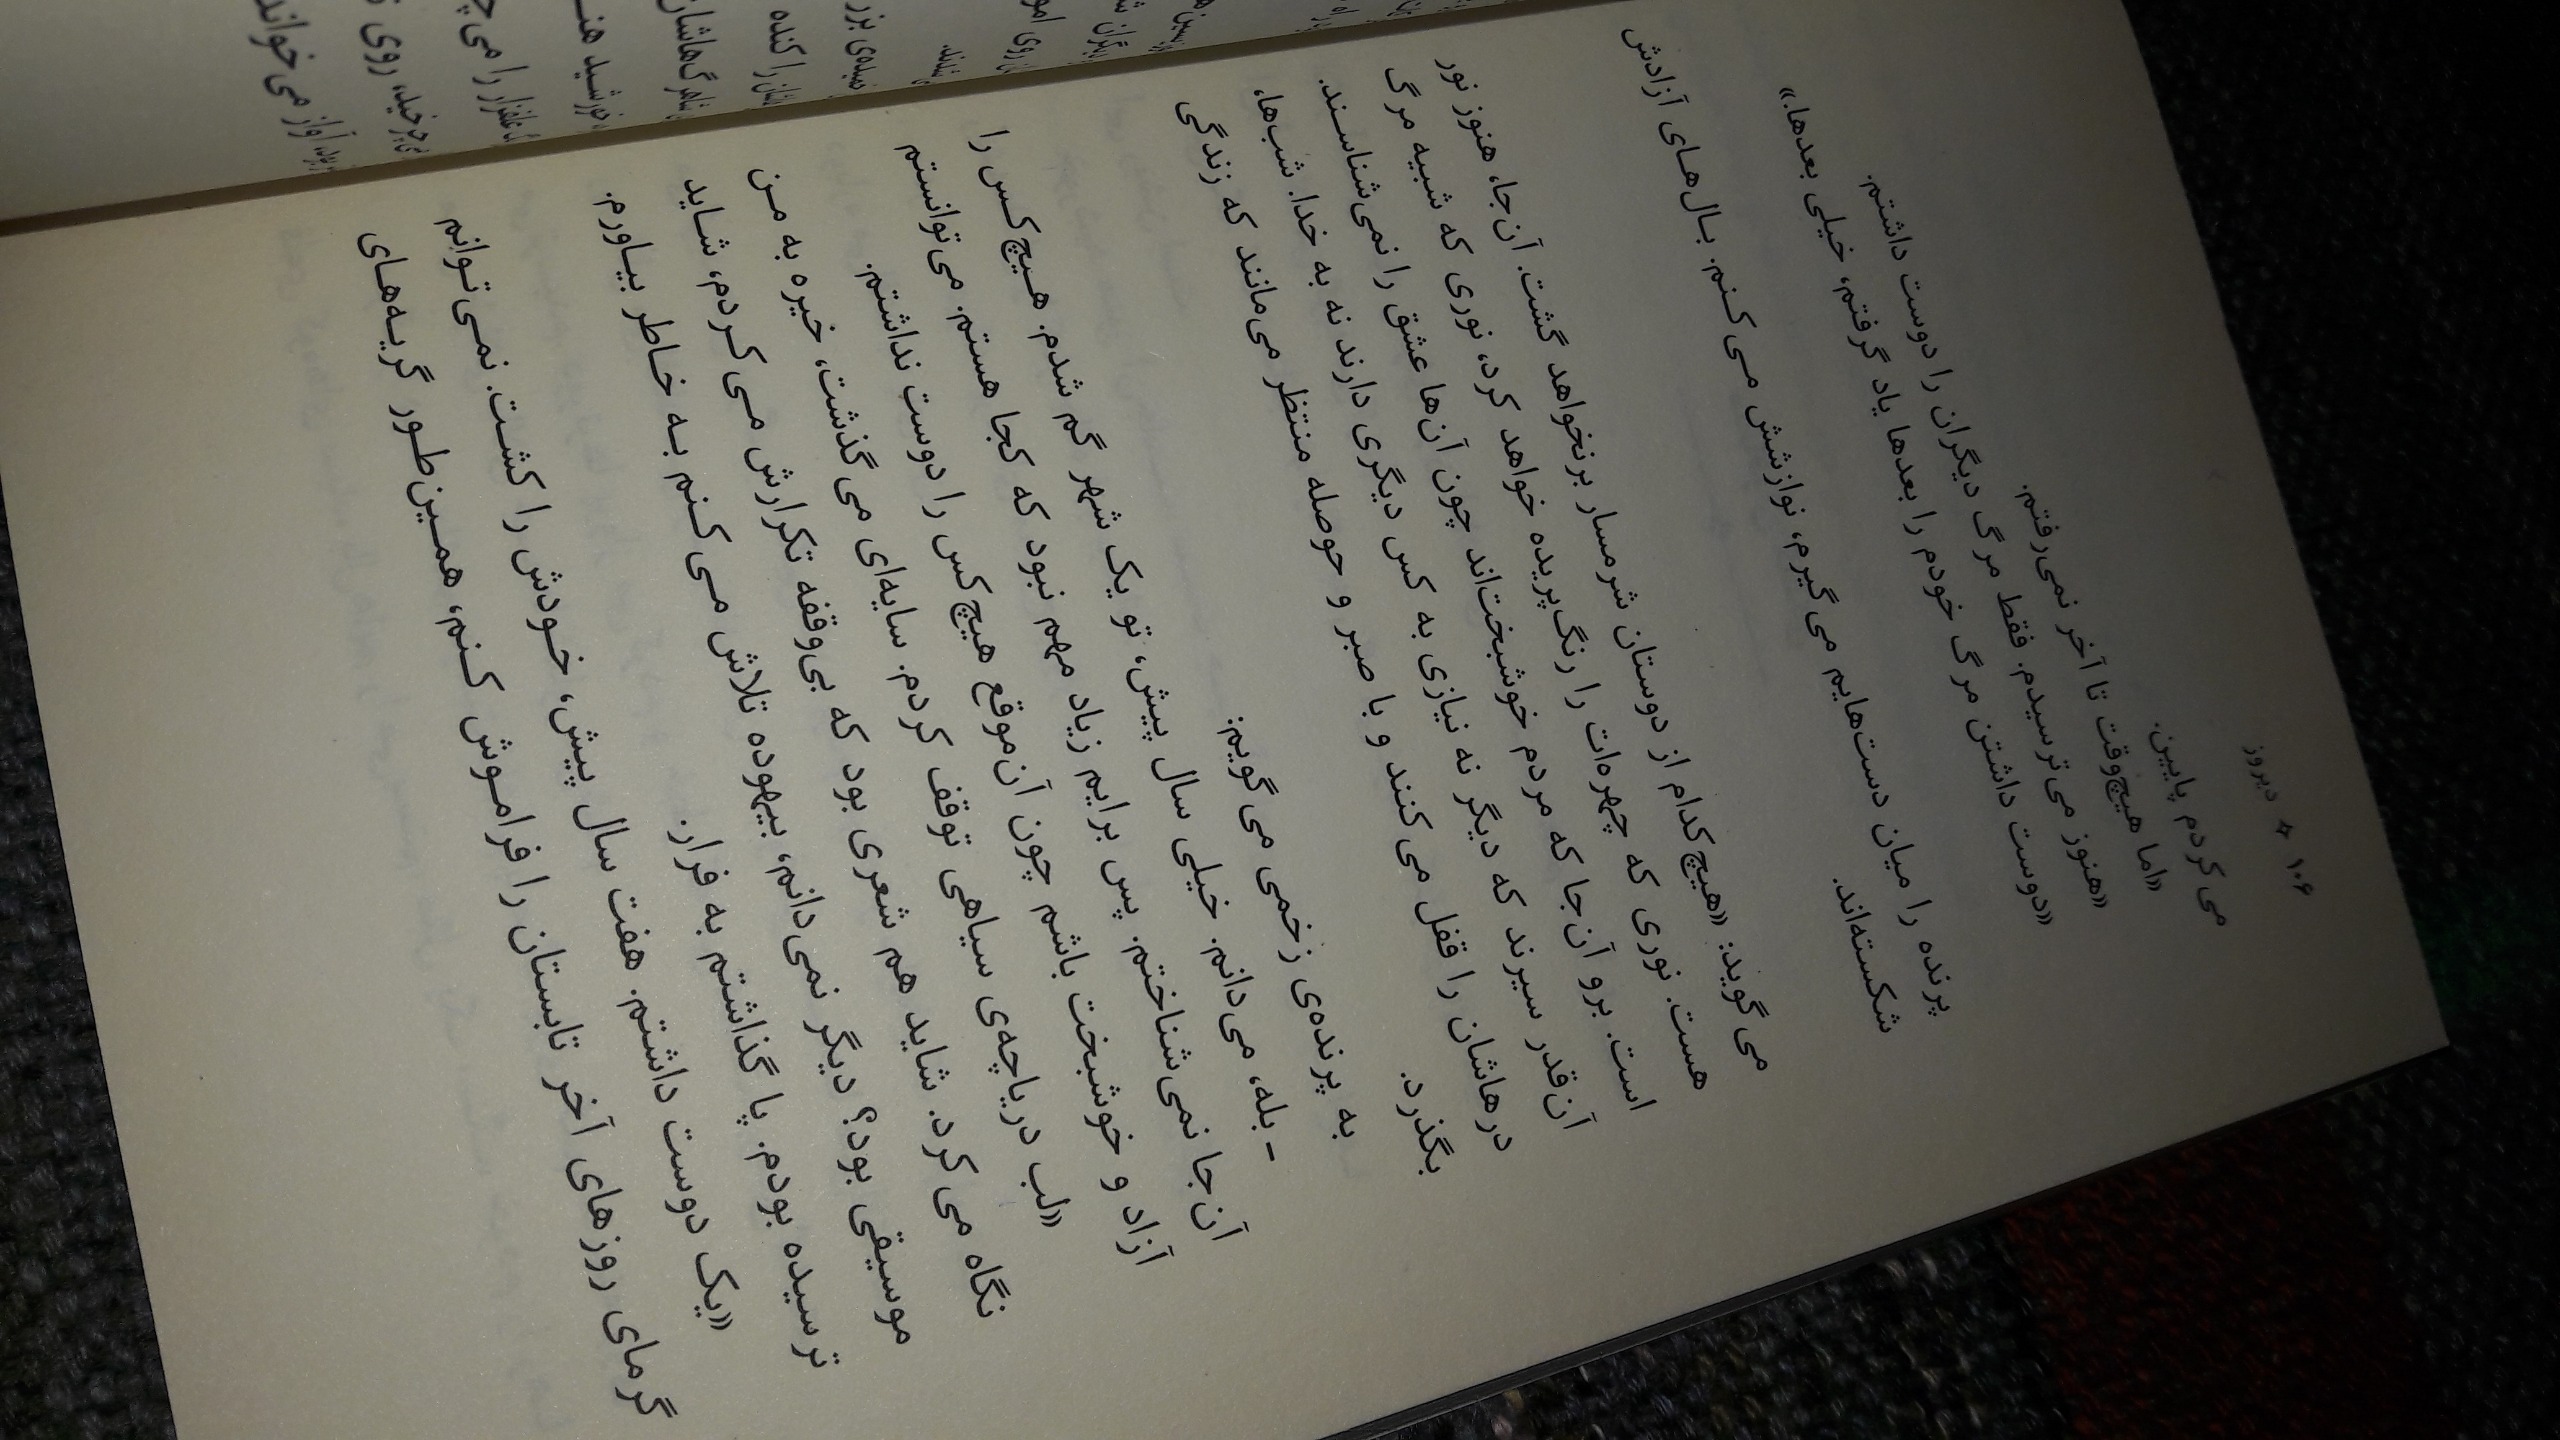 ۱۰۶ ✦ دیروز
می‌کردم پایین.
«اما هیچ‌وقت تا آخر نمی‌رفتم.
«هنوز می‌ترسیدم. فقط مرگ دیگران را دوست داشتم.
«دوست داشتن مرگ خودم را بعدها یاد گرفتم، خیلی بعدها.»
پرنده را میان دست‌هایم می‌گیرم، نوازشش می‌کنم. بال‌های آزادش
شکسته‌اند.
می‌گوید: «هیچ‌کدام از دوستان شرمسار برنخواهد گشت. آن‌جا، هنوز نور
هست. نوری که چهره‌ات را رنگ‌پریده خواهد کرد، نوری که شبیه مرگ
است. برو آن‌جا که مردم خوشبخت‌اند چون آن‌ها عشق را نمی‌شناسند.
آن‌قدر سیرند که دیگر نه نیازی به کس دیگری دارند نه به خدا. شب‌ها،
درهاشان را قفل می‌کنند و با صبر و حوصله منتظر می‌مانند که زندگی
بگذرد.
به پرنده‌ی زخمی می‌گویم:
- بله، می‌دانم. خیلی سال پیش، تو یک شهر گم شدم. هیچ‌کس را
آن‌جا نمی‌شناختم. پس برایم زیاد مهم نبود که کجا هستم. می‌توانستم
آزاد و خوشبخت باشم چون آن‌موقع هیچ‌کس را دوست نداشتم.
«لب دریاچه‌ی سیاهی توقف کردم. سایه‌ای می‌گذشت، خیره به من
نگاه می‌کرد. شاید هم شعری بود که بی‌وقفه تکرارش می‌کردم، شاید
موسیقی بود؟ دیگر نمی‌دانم، بیهوده تلاش می‌کنم به خاطر بیاورم.
ترسیده بودم. پا گذاشتم به فرار.
«یک دوست داشتم. هفت سال پیش، خودش را کشت. نمی‌توانم
گرمای روزهای آخر تابستان را فراموش کنم، همین‌طور گریه‌های